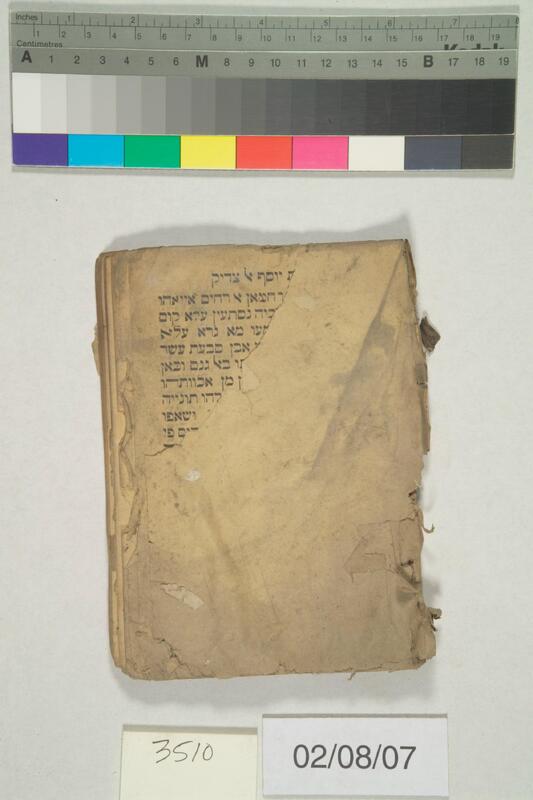 Inches 1 2 3 4 5 6 7 8
Centimetres 1 2 3 4 5 6 7 8 9 10 11 12 13 14 15 16 17 18 19
A 1 2 3 4 5 6 M 8 9 10 11 12 13 14 15 B 17 18 19
יוסף א׳ צדיק
א רחים אייאהו
נסתעין עלא קום
מא גרא עליא
אבן סבעת עשר
כא גנם וכאן
מן אכוותהו
תוגייה
ושאפו
פי
3510
02/08/07